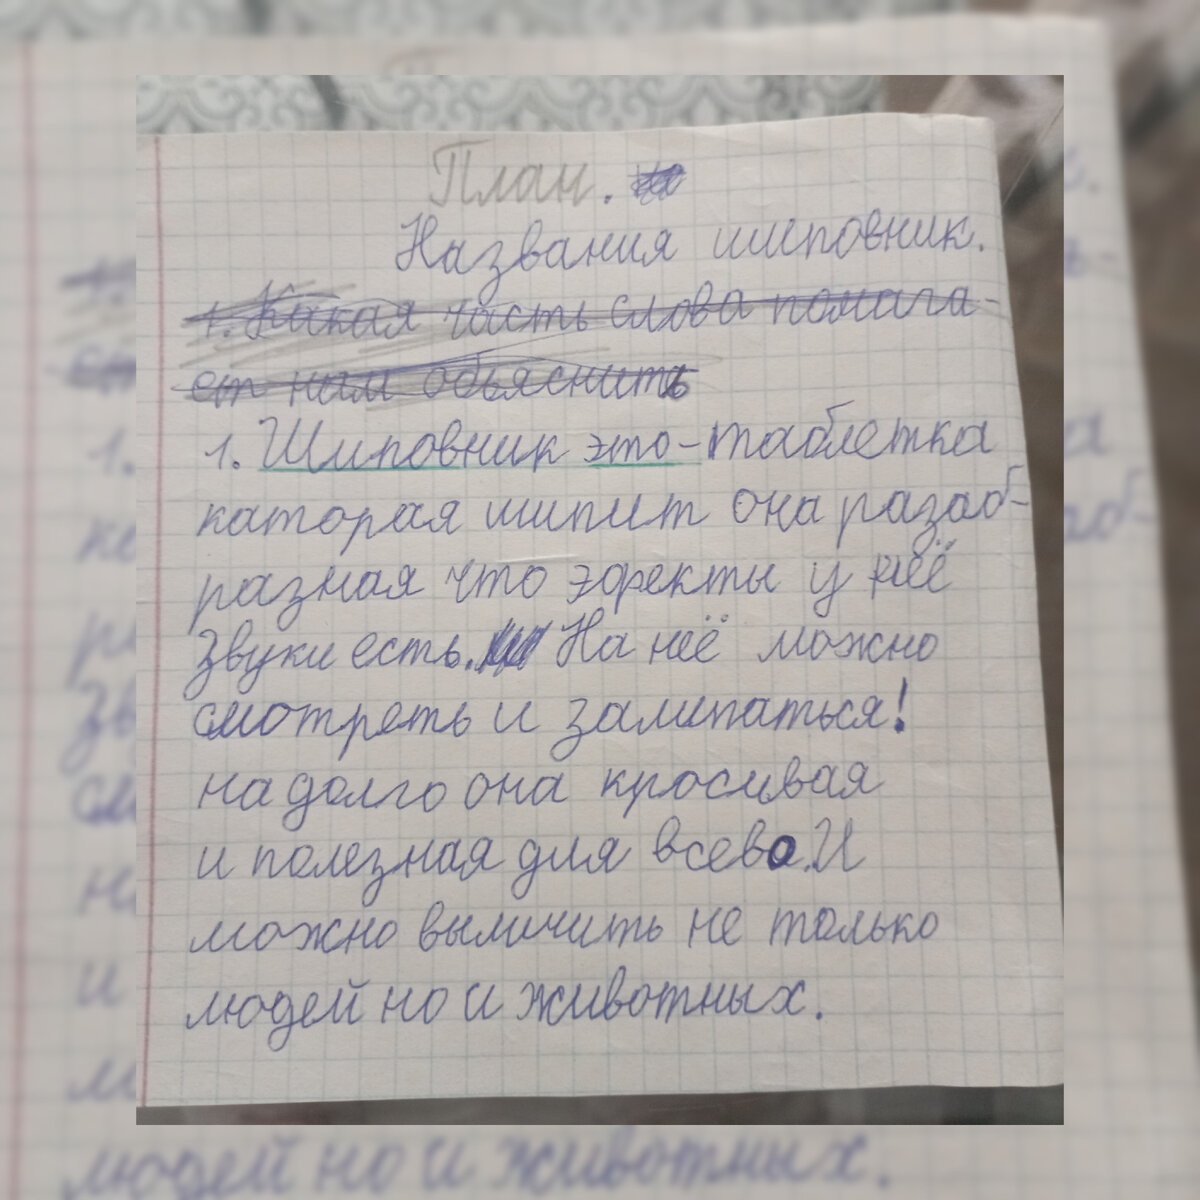 План.
Названия шиповник.
1. Какая часть слова помага-
ет нам обьяснить
1. Шиповник это-таблетка
каторая шипит она разаоб-
разная что эфекты у неё
звуки есть. На неё можно
смотреть и залипаться!
на долго она кросивая
и полезная для всево. И
можно выличить не только
людей но и животных.